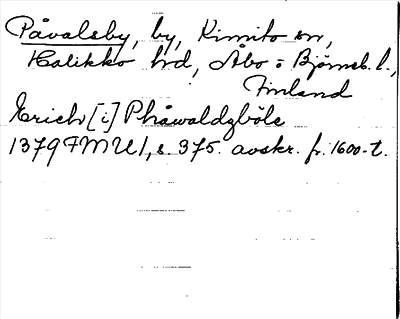 Påvalsby, by, Kimito sn,
Halikko hd, Åbo - Björneb. l.,
Finland
Erich [i] Phåwaldzböle
1379 FMU I, s. 375. avskr. fr. 1600-t.